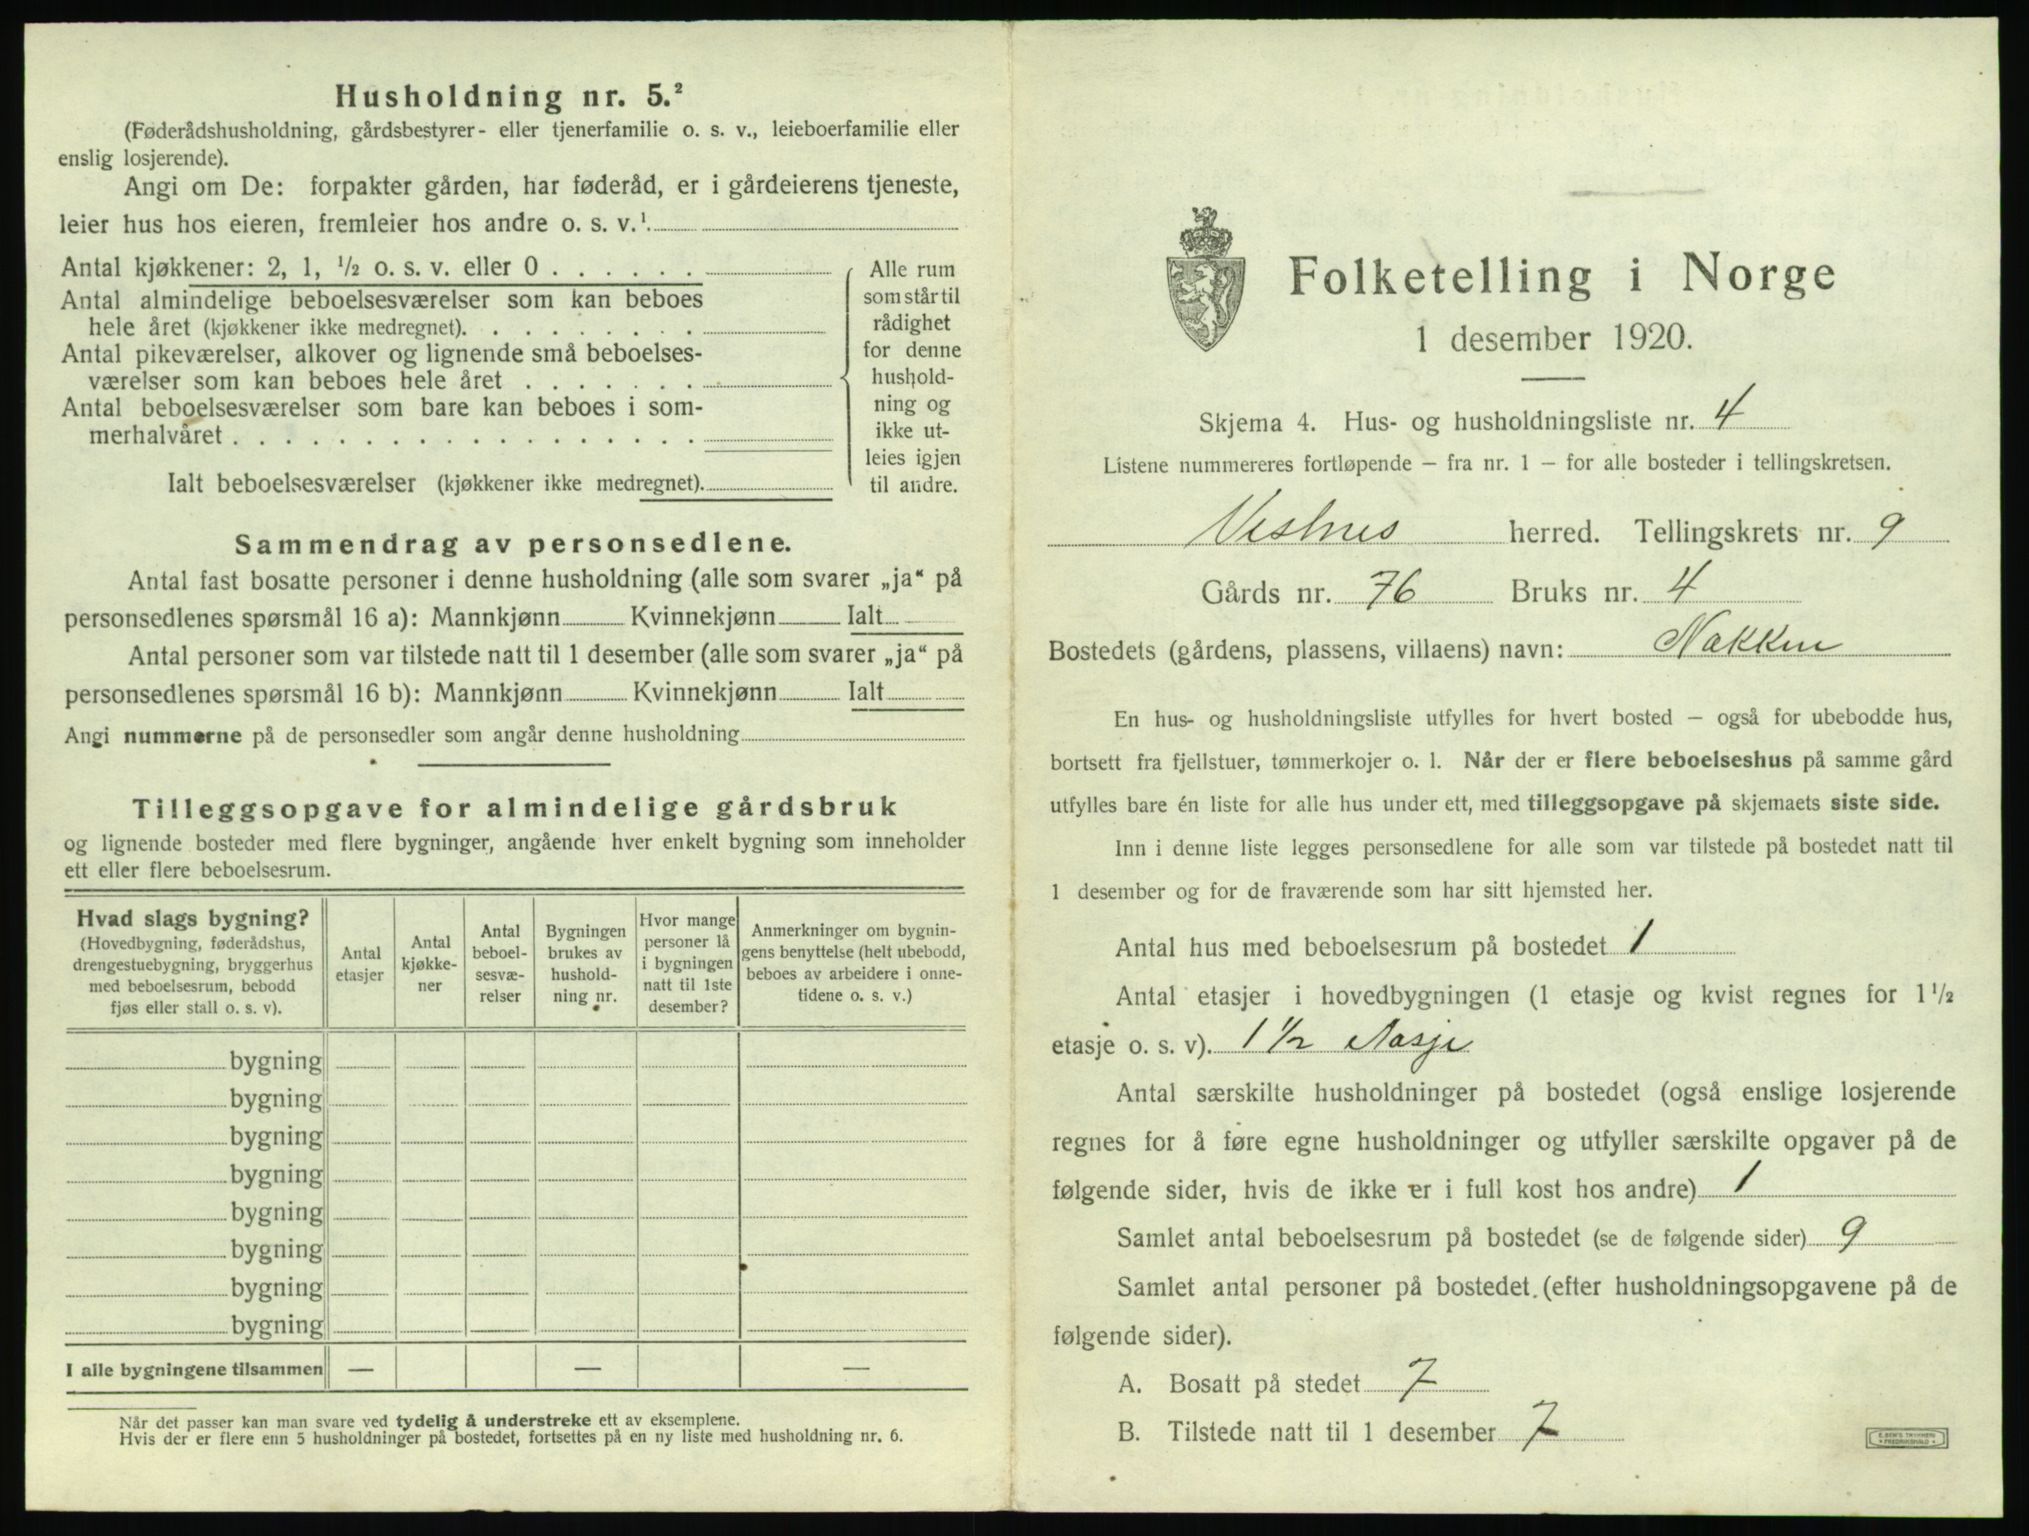 Husholdning nr. 5.²
(Føderådshusholdning, gårdsbestyrer- eller tjenerfamilie o. s. v., leieboerfamilie eller
enslig losjerende).
Angi om De: forpakter gården, har føderåd, er i gårdeierens tjeneste,
leier hus hos eieren, fremleier hos andre o. s. v.¹
Antal kjøkkener: 2, 1, ½ o. s. v. eller 0
Antal almindelige beboelsesværelser som kan beboes
hele året (kjøkkener ikke medregnet).
Antal pikeværelser, alkover og lignende små beboelses-
værelser som kan beboes hele året
Antal beboelsesværelser som bare kan beboes i som-
merhalvåret
Ialt beboelsesværelser (kjøkkener ikke medregnet).
Alle rum
som står til
rådighet
for denne
hushold-
ning og
ikke ut-
leies igjen
til andre.
Sammendrag av personsedlene.
Antal fast bosatte personer i denne husholdning (alle som svarer „ja“ på
personsedlenes spørsmål 16 a): Mannkjønn Kvinnekjønn Ialt
Antal personer som var tilstede natt til 1 desember (alle som svarer „ja“ på
personsedlenes spørsmål 16 b): Mannkjønn Kvinnekjønn Ialt
Angi nummerne på de personsedler som angår denne husholdning
Tilleggsopgave for almindelige gårdsbruk
og lignende bosteder med flere bygninger, angående hver enkelt bygning som inneholder
ett eller flere beboelsesrum.
Hvad slags bygning?
(Hovedbygning, føderådshus,
drengestuebygning, bryggerhus
med beboelsesrum, bebodd
fjøs eller stall o. s. v).
Antal
etasjer
Antal
kjøkke-
ner
Antal
beboel-
sesvæ-
relser
Bygningen
brukes av
hushold-
ning nr.
Hvor mange
personer lå
i bygningen
natt til 1ste
desember?
Anmerkninger om bygnin-
gens benyttelse (helt ubebodd,
beboes av arbeidere i onne-
tidene o. s. v.)
bygning
bygning
bygning
bygning
bygning
bygning
bygning
bygning
I alle bygningene tilsammen — — —
Når det passer kan man svare ved tydelig å understreke ett av eksemplene.
Hvis der er flere enn 5 husholdninger på bostedet, fortsettes på en ny liste med husholdning nr. 6.
Folketelling i Norge
1 desember 1920.
Skjema 4. Hus- og husholdningsliste nr. 4
Listene nummereres fortløpende – fra nr. 1 – for alle bosteder i tellingskretsen.
Vestnes herred. Tellingskrets nr. 9
Gårds nr. 76 Bruks nr. 4
Bostedets (gårdens, plassens, villaens) navn: Nakken
En hus- og husholdningsliste utfylles for hvert bosted – også for ubebodde hus,
bortsett fra fjellstuer, tømmerkojer o. l. Når der er flere beboelseshus på samme gård
utfylles bare én liste for alle hus under ett, med tilleggsopgave på skjemaets siste side.
Inn i denne liste legges personsedlene for alle som var tilstede på bostedet natt til
1 desember og for de fraværende som har sitt hjemsted her.
Antal hus med beboelsesrum på bostedet 1
Antal etasjer i hovedbygningen (1 etasje og kvist regnes for 1½
etasje o. s. v). 1 ½ Aasje
Antal særskilte husholdninger på bostedet (også enslige losjerende
regnes for å føre egne husholdninger og utfyller særskilte opgaver på de
følgende sider, hvis de ikke er i full kost hos andre) 1
Samlet antal beboelsesrum på bostedet (se de følgende sider) 9
Samlet antal personer på bostedet (efter husholdningsopgavene på de
følgende sider).
A. Bosatt på stedet 7
B. Tilstede natt til 1 desember 7